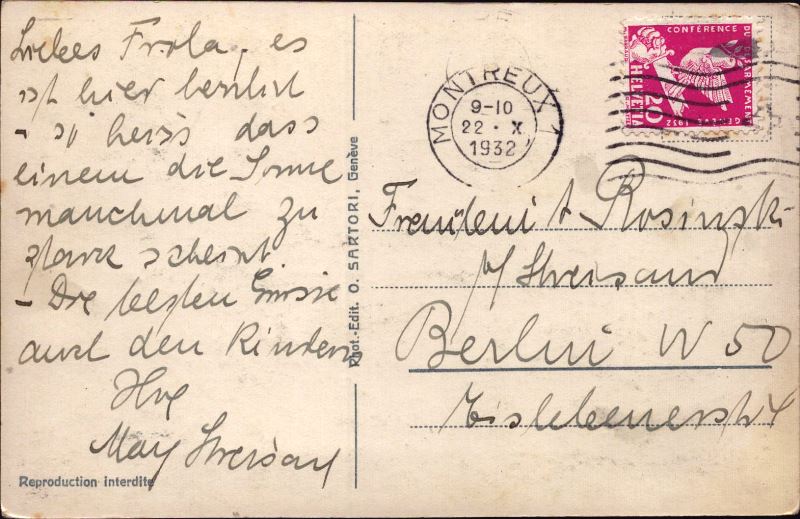 Liebes Frola, es
ist hier herrlich
- so heiss dass
einem die Sonne
manchmal zu
stark scheint
- Die besten Grüsse
auch den Kindern
Ihr
May
Reproduction interdite
Phot.-Edit. O. SARTORI, Genève
MONTREUX 1
9-10
22 · X
1932
CONFÉRENCE
DU DÉSARMEMENT
GENÈVE 1932
HELVETIA
20
Fräulein A Rosinski
b/ Streisand
Berlin W 50
Eislebenerstr 4